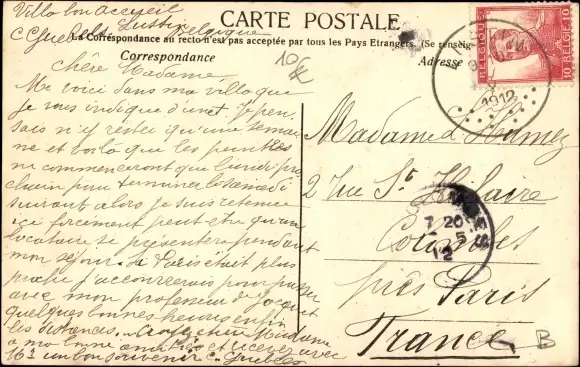 Villa bon Accueil
Lustin
Belgique
CARTE POSTALE
La Correspondance au recto n'est pas acceptée par tous les Pays Etrangers. (Se renseig
Correspondance
Adresse
BELGIQUE 10 BELGIË 10
1912
Chère Madame,
Me voici dans ma villa que
je vous indique d'une Je pen
sais n'y rester qu'une semai
ne et voilà que les peintres
ne commenceront que lundi pro
chain pour terminer le samedi
suivant alors je suis retenue
ici forcément peut-être qu'un
locataire se présentera pendant
mon séjour. Si Paris était plus
proche j'accourerais pour passer
avec mon professeur
quelques bonnes heures enfin
les distances. chère Madame
à ma bonne amitié et recevez avec
un bon souvenir C.
Madame d
2 rue St Hilaire
Colombes
près Paris
France
7 20
5
12
B